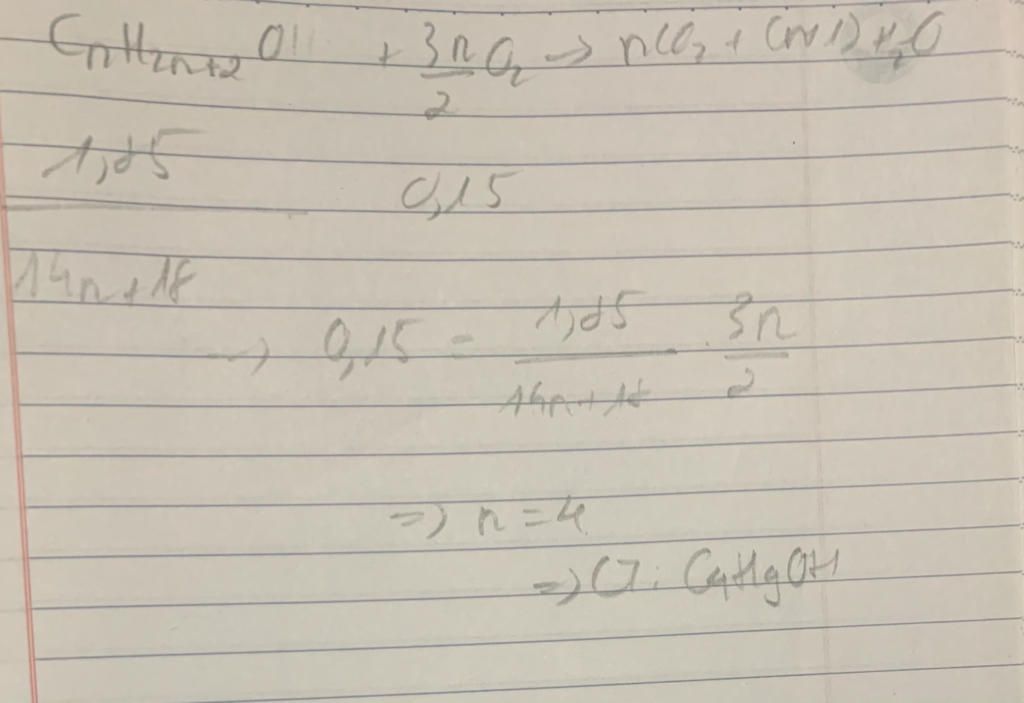 CnH2n+2 O + 3n/2 O2 → nCO2 + (n+1) H2O
1,85 / 14n+18 0,15
→ 0,15 = 1,85 / 14n+18 . 3n / 2
=> n = 4
=> CT: C4H9OH